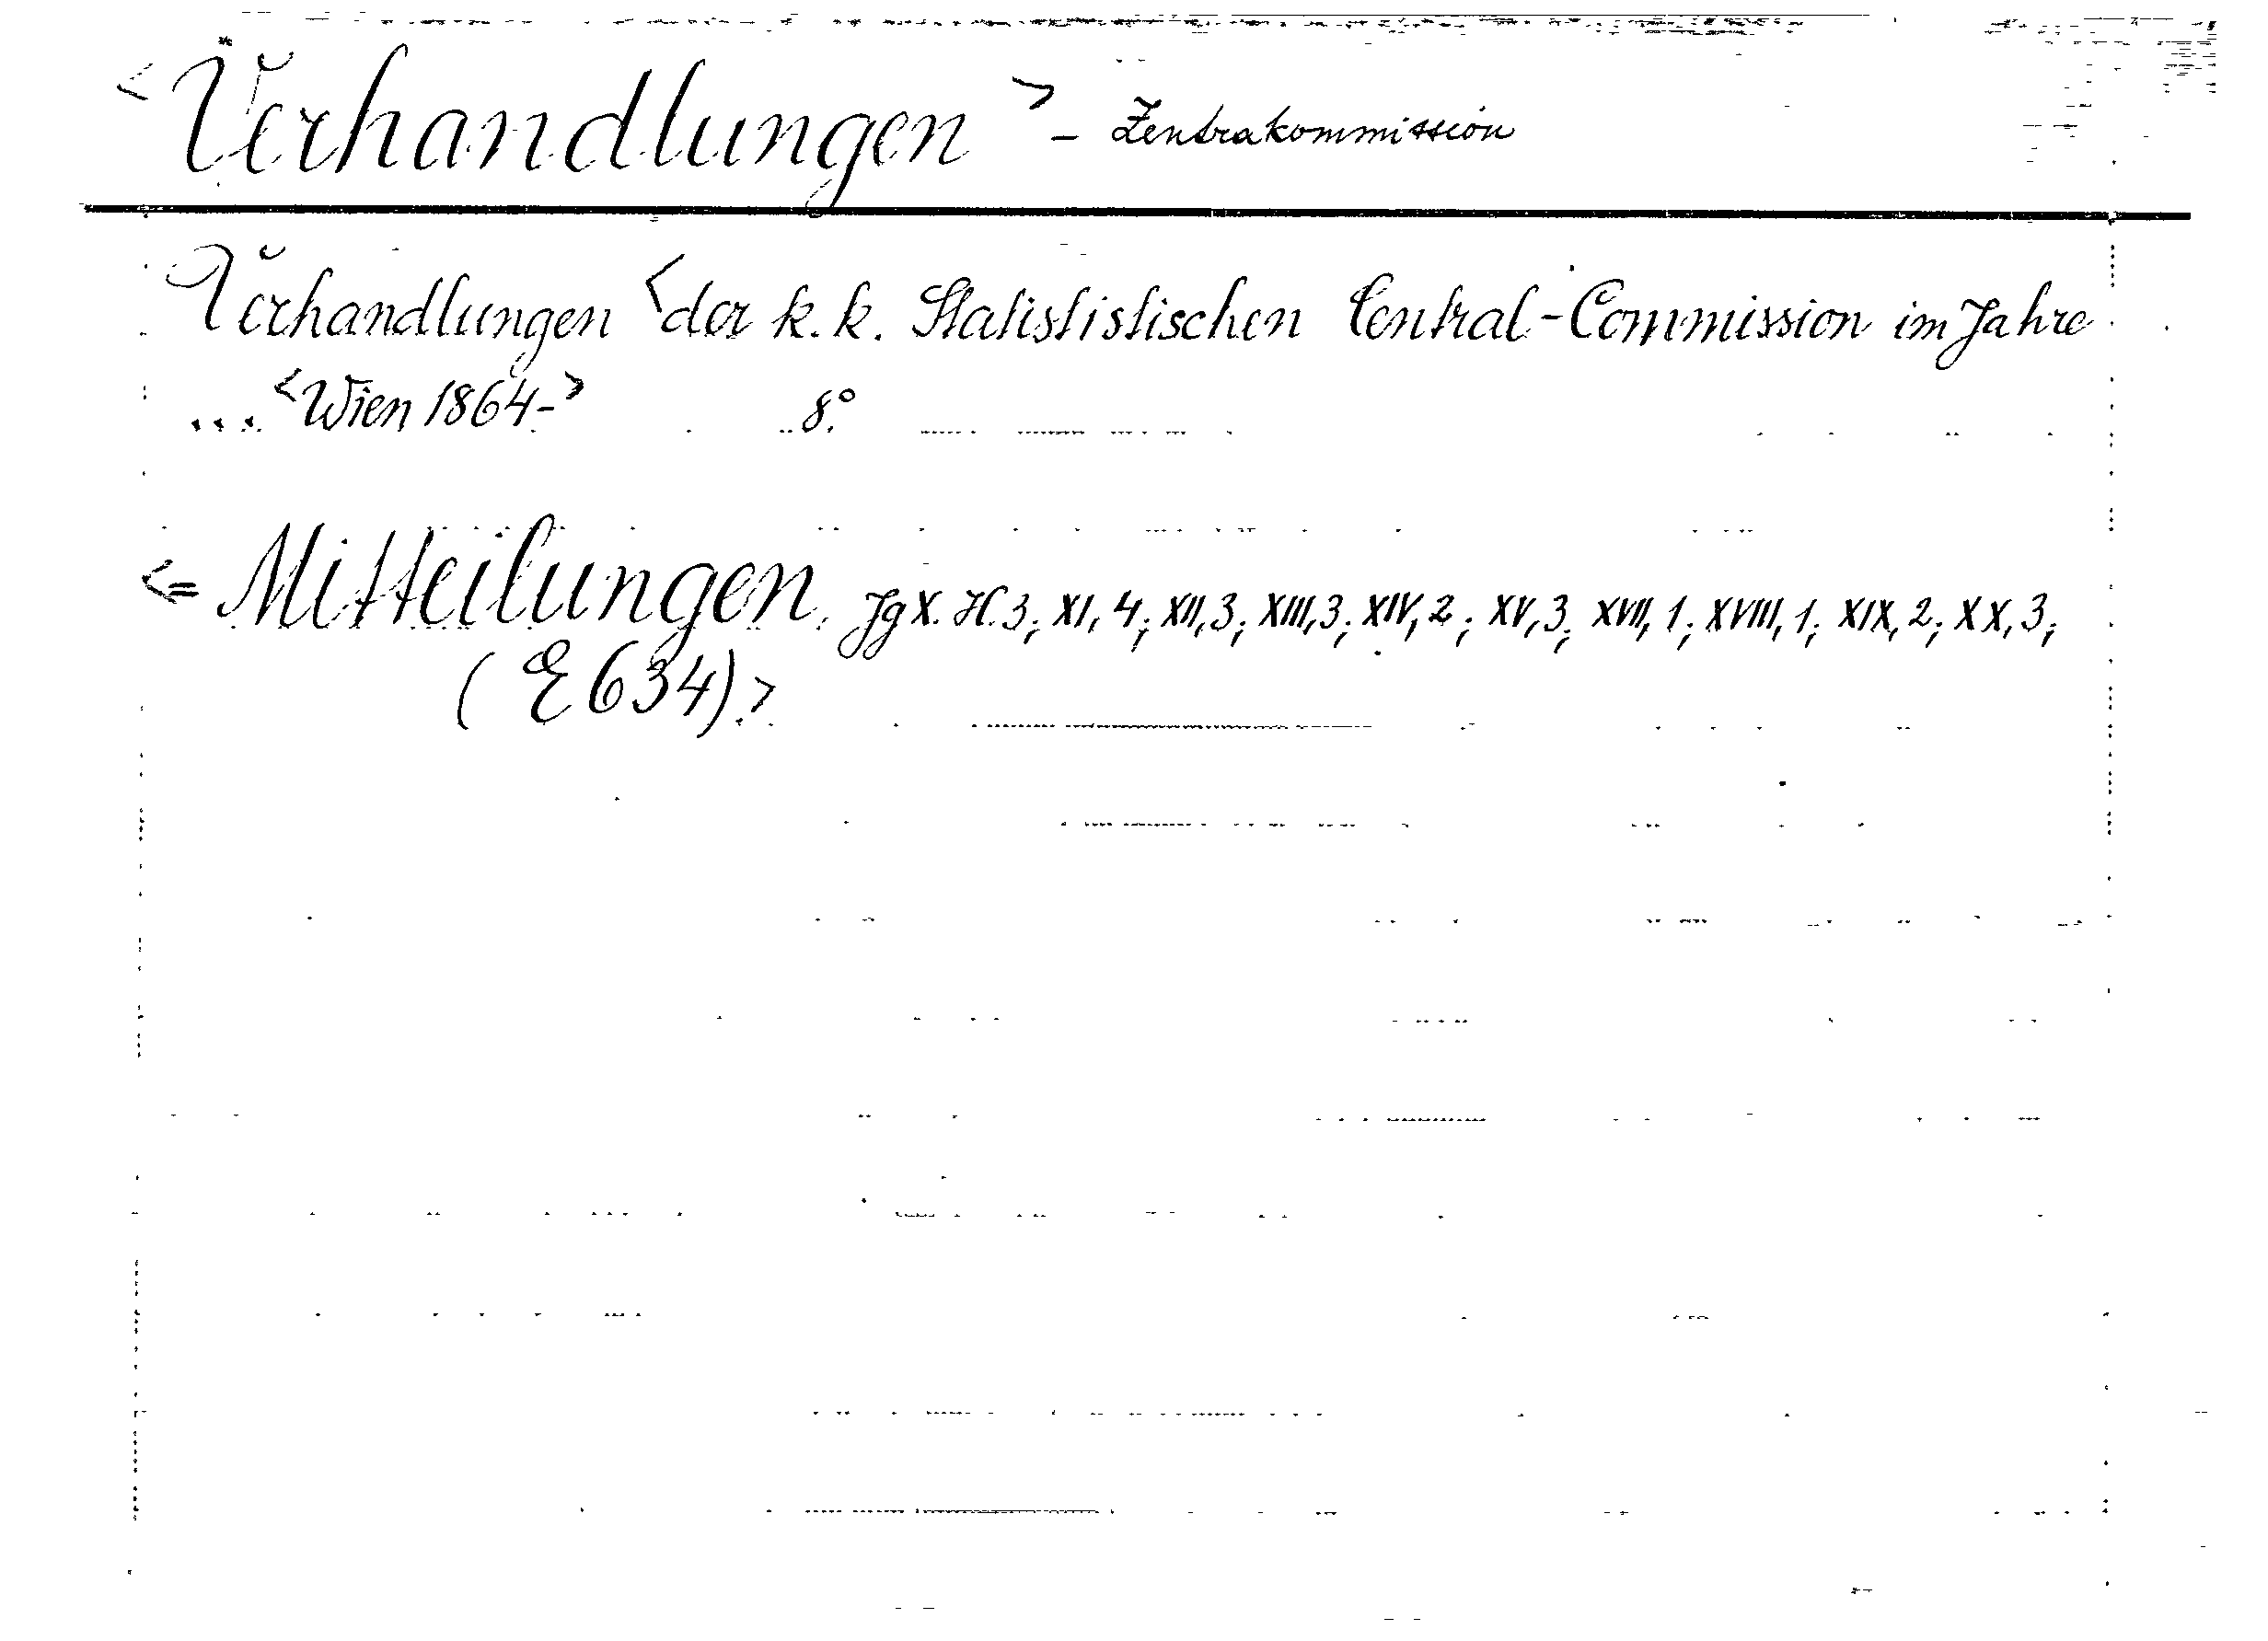 <Verhandlungen> - Zentrakommission
Verhandlungen <der k. k. Statististischen Central-Commission im Jahre
... <Wien 1864-> 8.°
<= Mitteilungen. Jg X. H. 3; XI, 4; XII, 3; XIII, 3; XIV, 2; XV, 3; XVII, 1; XVIII, 1; XIX, 2; XX, 3;
(E 634)>